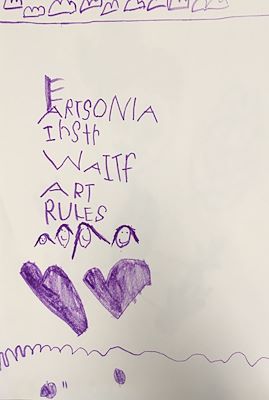 E
ARTSONIA
Ihsth
WAITF
ART
RULES